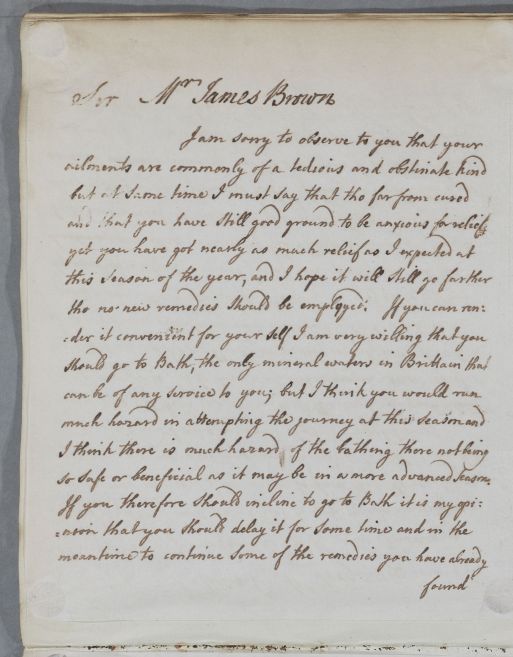 For Mr James Brown
I am sorry to observe to you that your
ailments are commonly of a tedious and obstinate kind
but at same time I must say that tho far from cured
and that you have still good ground to be anxious for relief
yet you have got nearly as much relief as I expected at
this season of the year, and I hope it will still go farther
tho no new remedies should be employed. If you can ren:
:der it convenient for your self I am very willing that you
should go to Bath, the only mineral waters in Brittain that
can be of any service to you; but I think you would run
much hazard in attempting the journey at this season and
I think there is much hazard of the bathing there not being
so safe or beneficial as it may be in a more advanced season.
If you therefore should incline to go to Bath it is my opi:
:nion that you should delay it for some time and in the
meantime to continue some of the remedies you have already
found